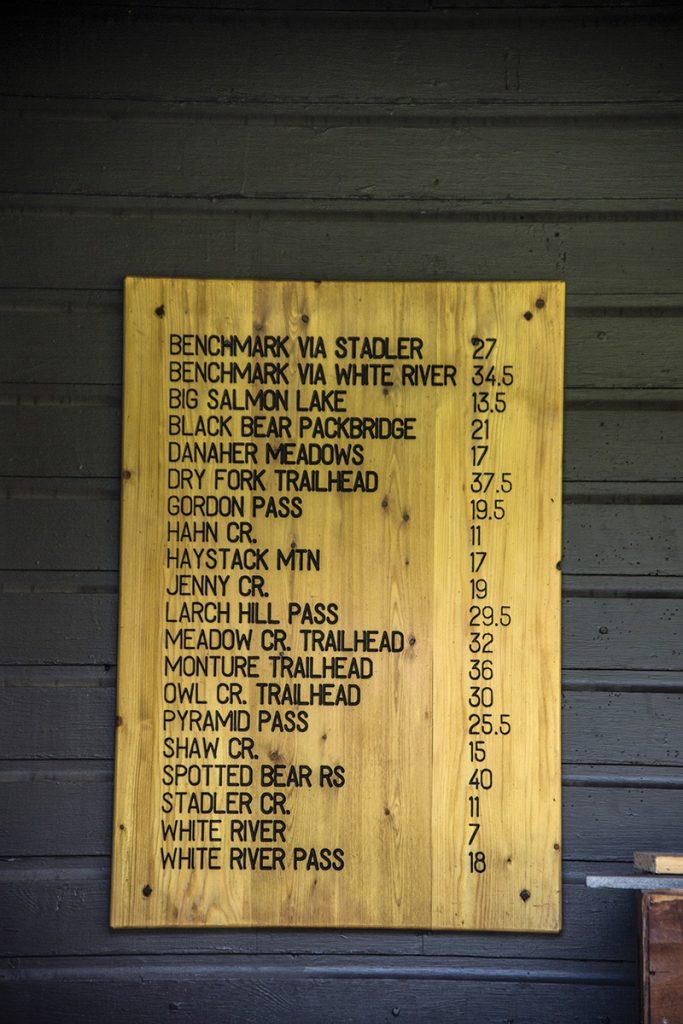 BENCHMARK VIA STADLER 27
BENCHMARK VIA WHITE RIVER 34.5
BIG SALMON LAKE 13.5
BLACK BEAR PACKBRIDGE 21
DANAHER MEADOWS 17
DRY FORK TRAILHEAD 37.5
GORDON PASS 19.5
HAHN CR. 11
HAYSTACK MTN 17
JENNY CR. 19
LARCH HILL PASS 29.5
MEADOW CR. TRAILHEAD 32
MONTURE TRAILHEAD 36
OWL CR. TRAILHEAD 30
PYRAMID PASS 25.5
SHAW CR. 15
SPOTTED BEAR RS 40
STADLER CR. 11
WHITE RIVER 7
WHITE RIVER PASS 18